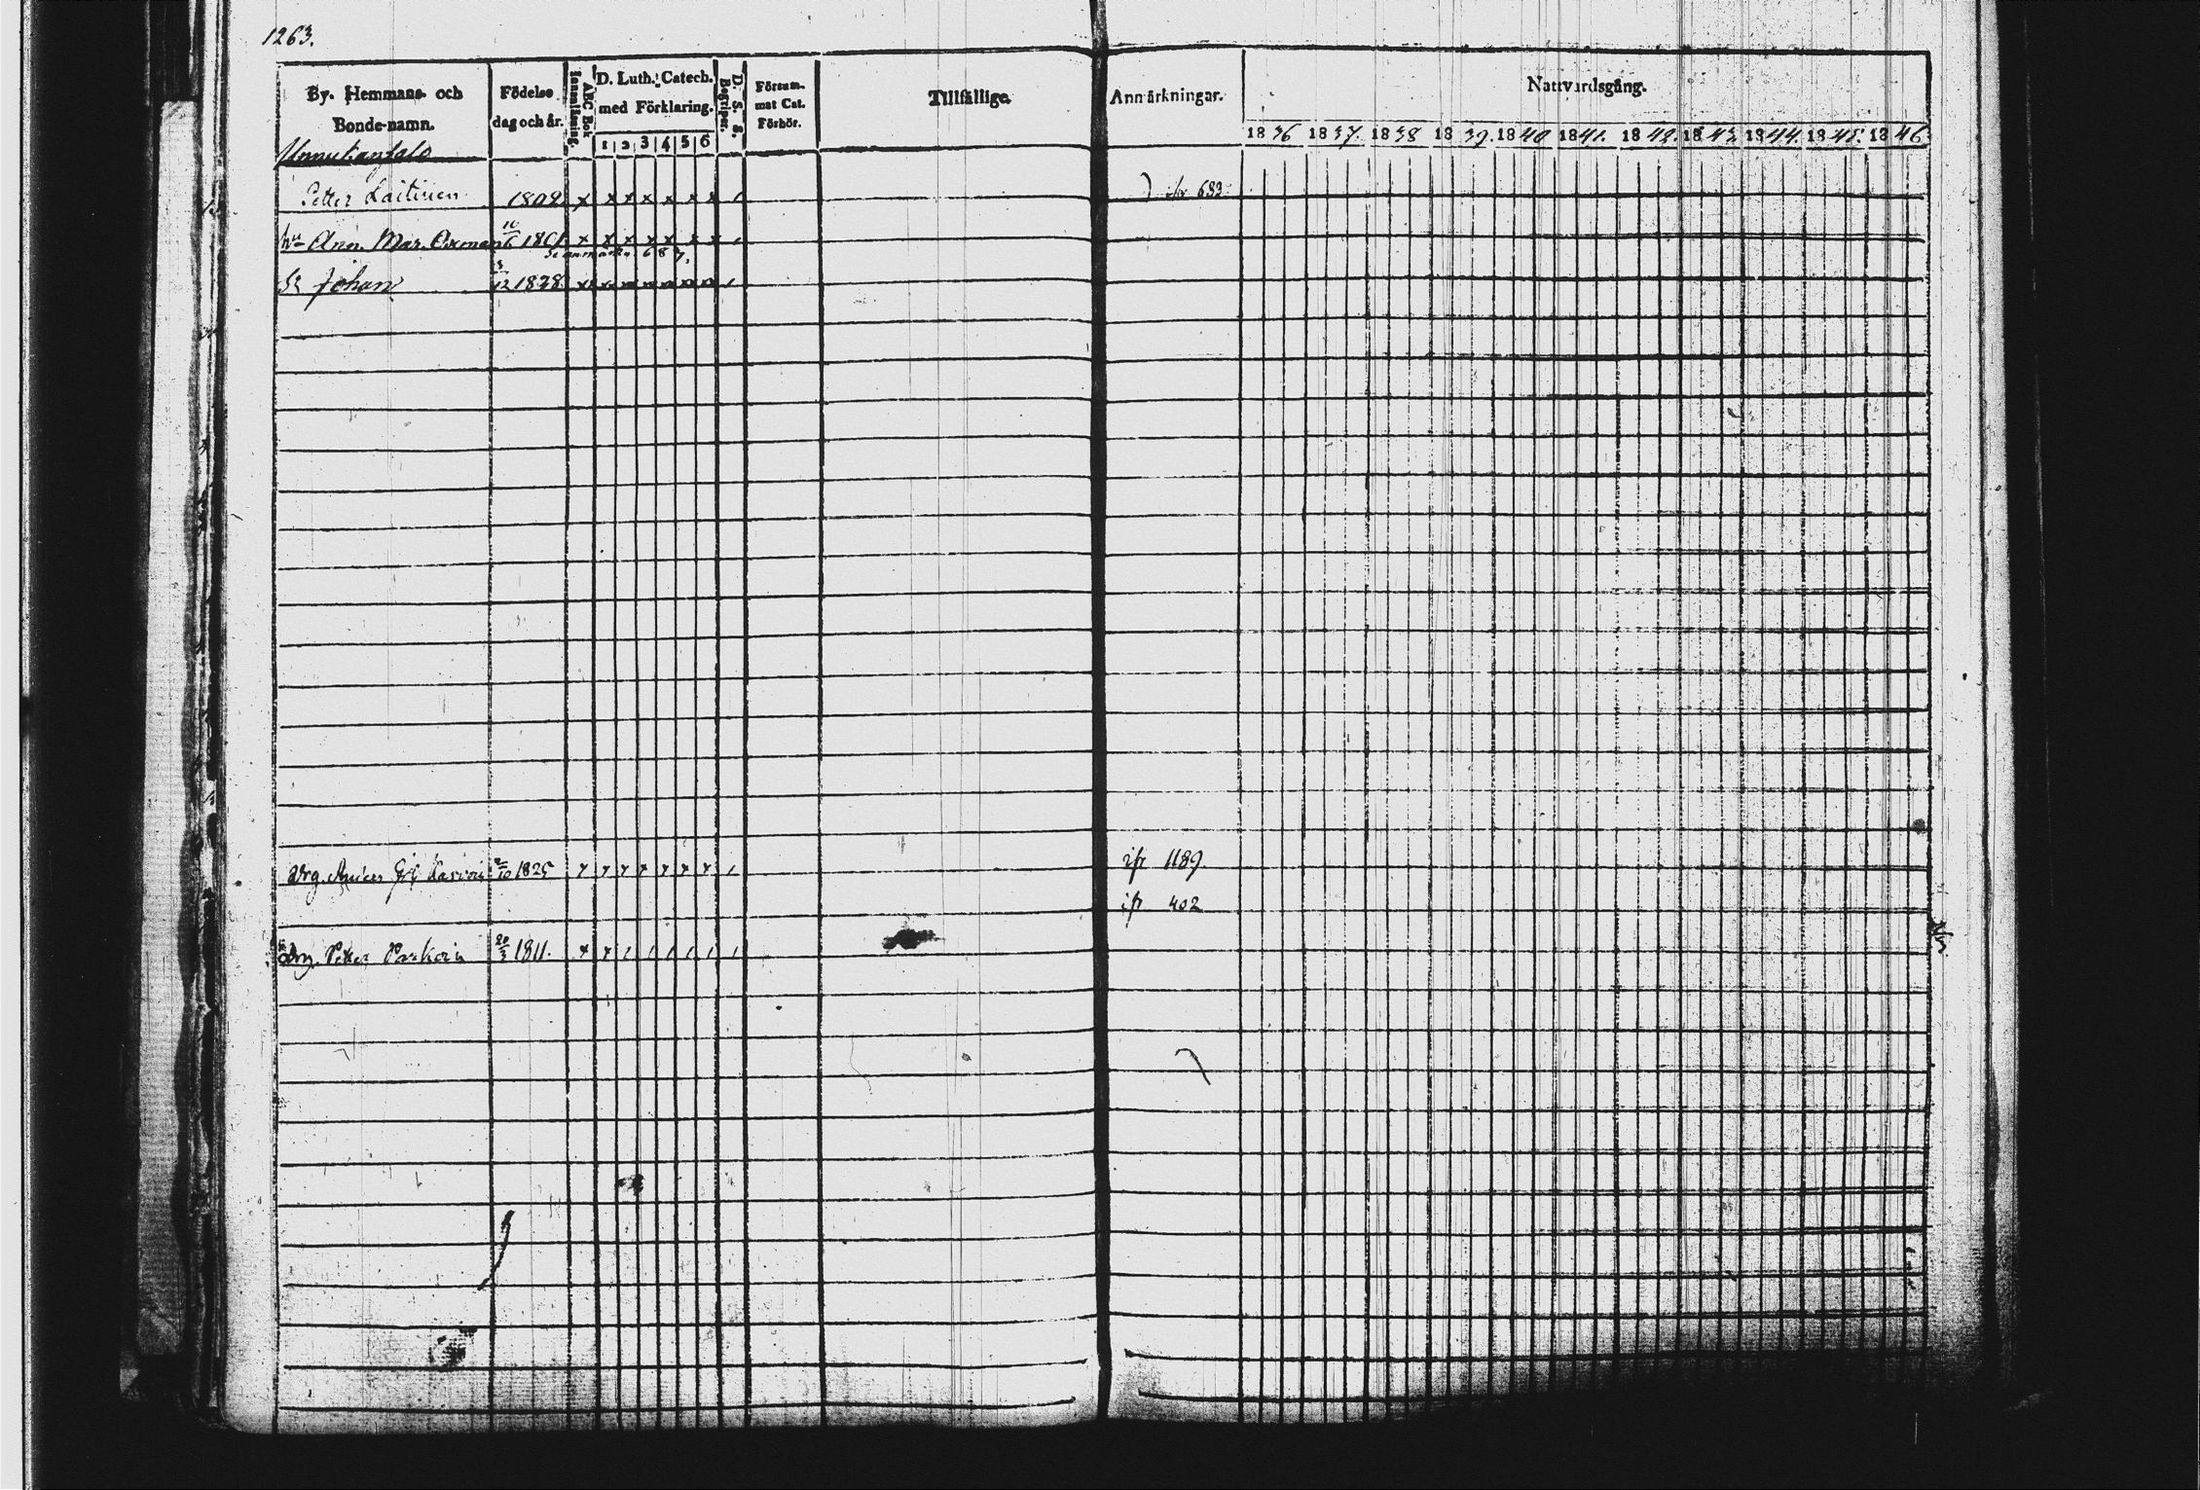 1263.
By. Hemmans- och Bonde-namn.
Födelse dag och år.
ABC Bok
Innanläsning.
D. Luth. Catech. med Förklaring.
1 2 3 4 5 6
D. S. S.
Begriper.
Försummat Cat. Förhör.
Tillfällige
Anmärkningar.
Nattvardsgång.
1836 1837. 1838 1839. 1840 1841. 1842. 1843. 1844. 1845. 1846.
Petter Laitinen 1802 x x x x x x x 1 ifr 683.
hu Ann. Mar. Oxman 10/6 1801 x x x x x x x 1
Sn Johan 3/12 1828
Drg. 2/10 1825 x x x x x x x 1 ifr 1189.
ifr 402
Drg. Petter 20/3 1811. x x 1 1 1 1 1 1